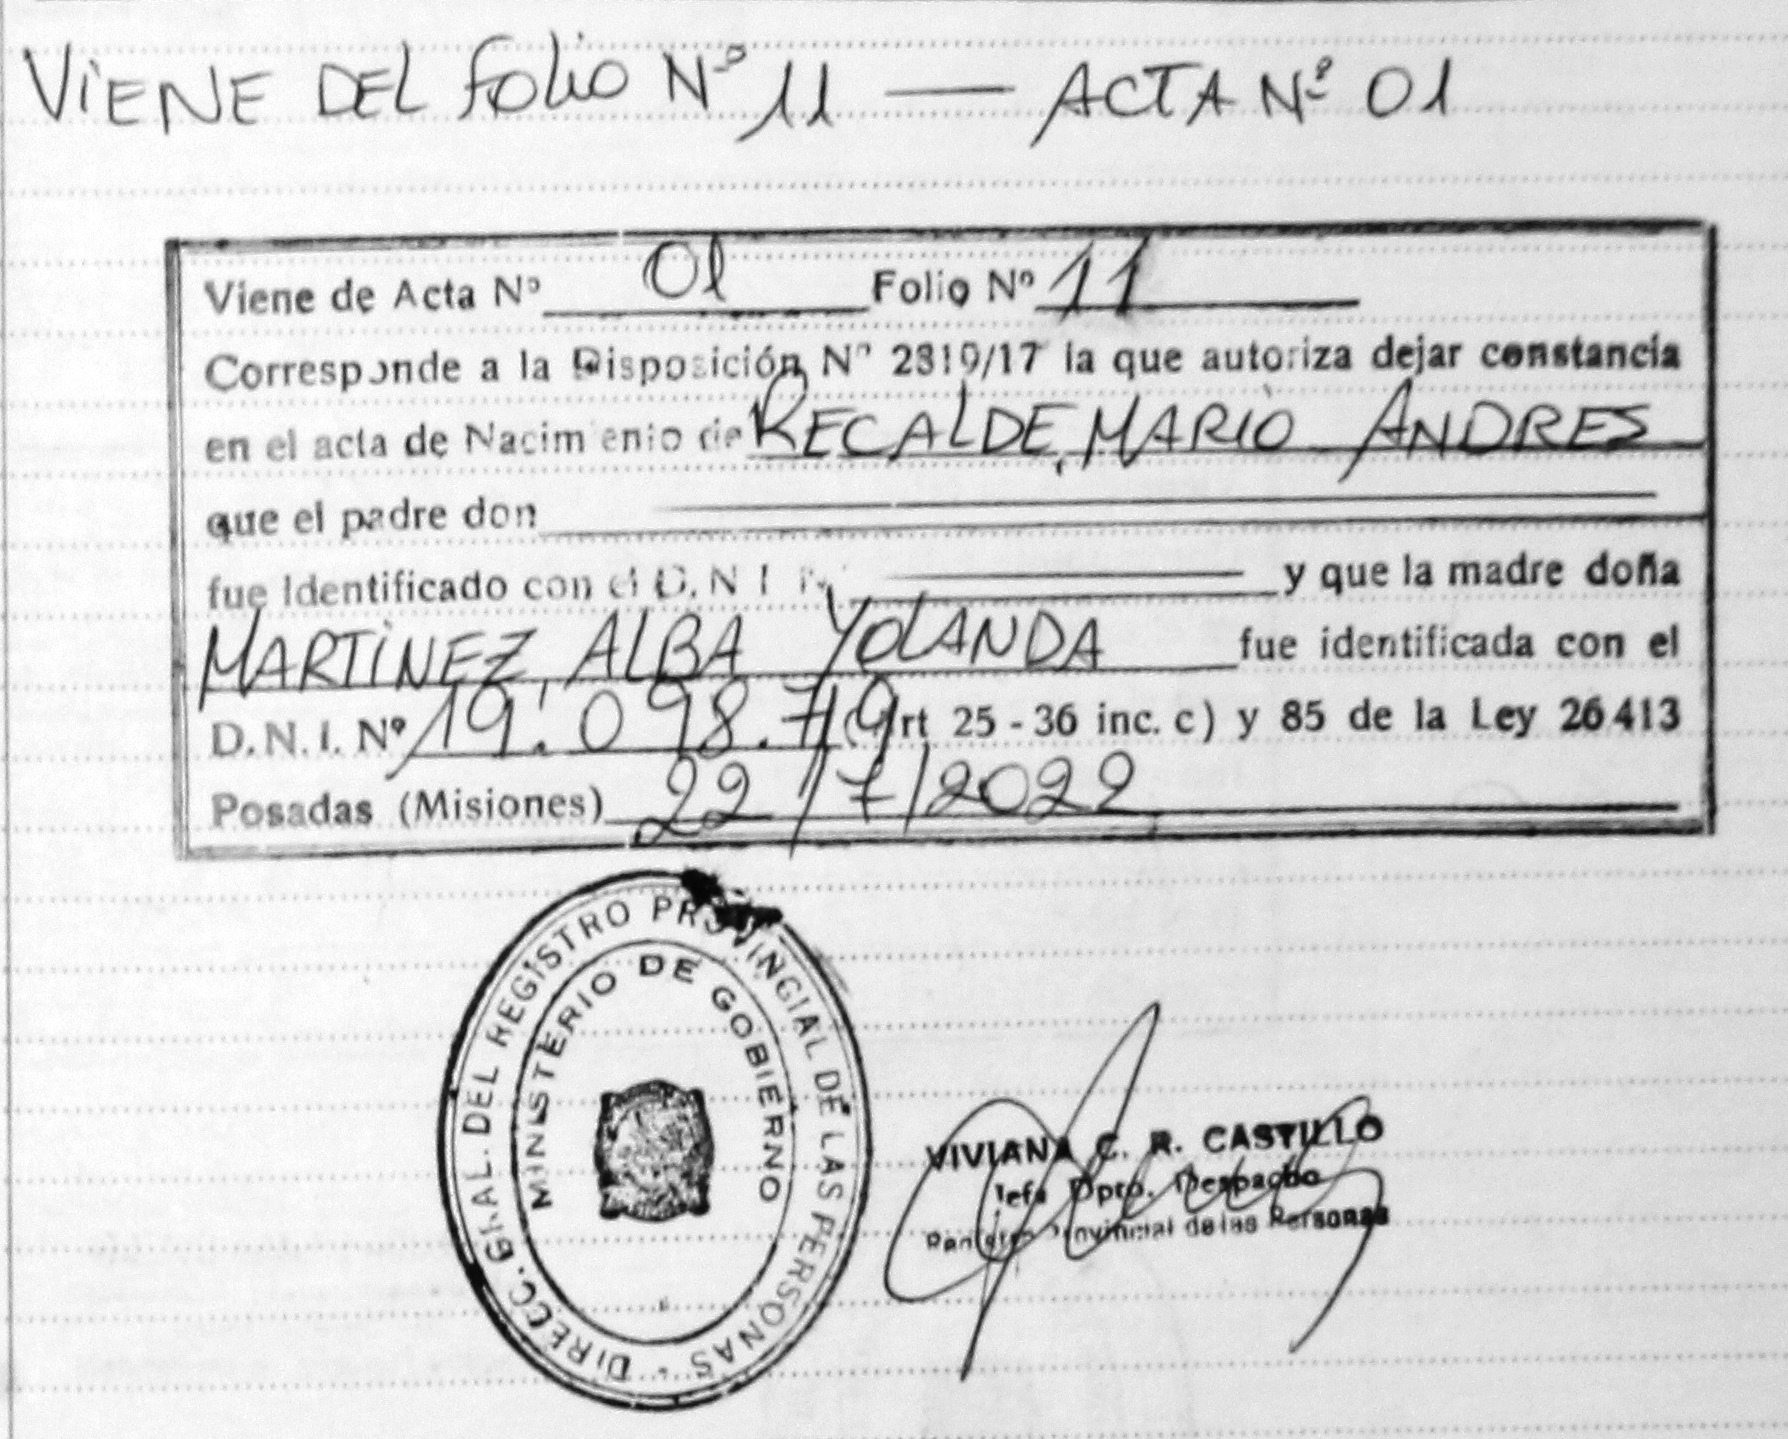 VIENE DEL FOLIO Nº 11 — ACTA Nº 01
Viene de Acta Nº 01 Folio Nº 11
Corresponde a la Disposición Nº 2319/17 la que autoriza dejar constancia
en el acta de Nacimiento de RECALDE, MARIO ANDRES
que el padre don
fue Identificado con el D.N.I Nº y que la madre doña
MARTINEZ, ALBA YOLANDA fue identificada con el
D.N.I. Nº 19.098. (Art 25 - 36 inc. c) y 85 de la Ley 26413
Posadas (Misiones) 22/7/2022
DIRECC. GRAL. DEL REGISTRO PROVINCIAL DE LAS PERSONAS
MINISTERIO DE GOBIERNO
VIVIANA C. R. CASTILLO
Jefa Dpto. Despacho
Registro Provincial de las Personas